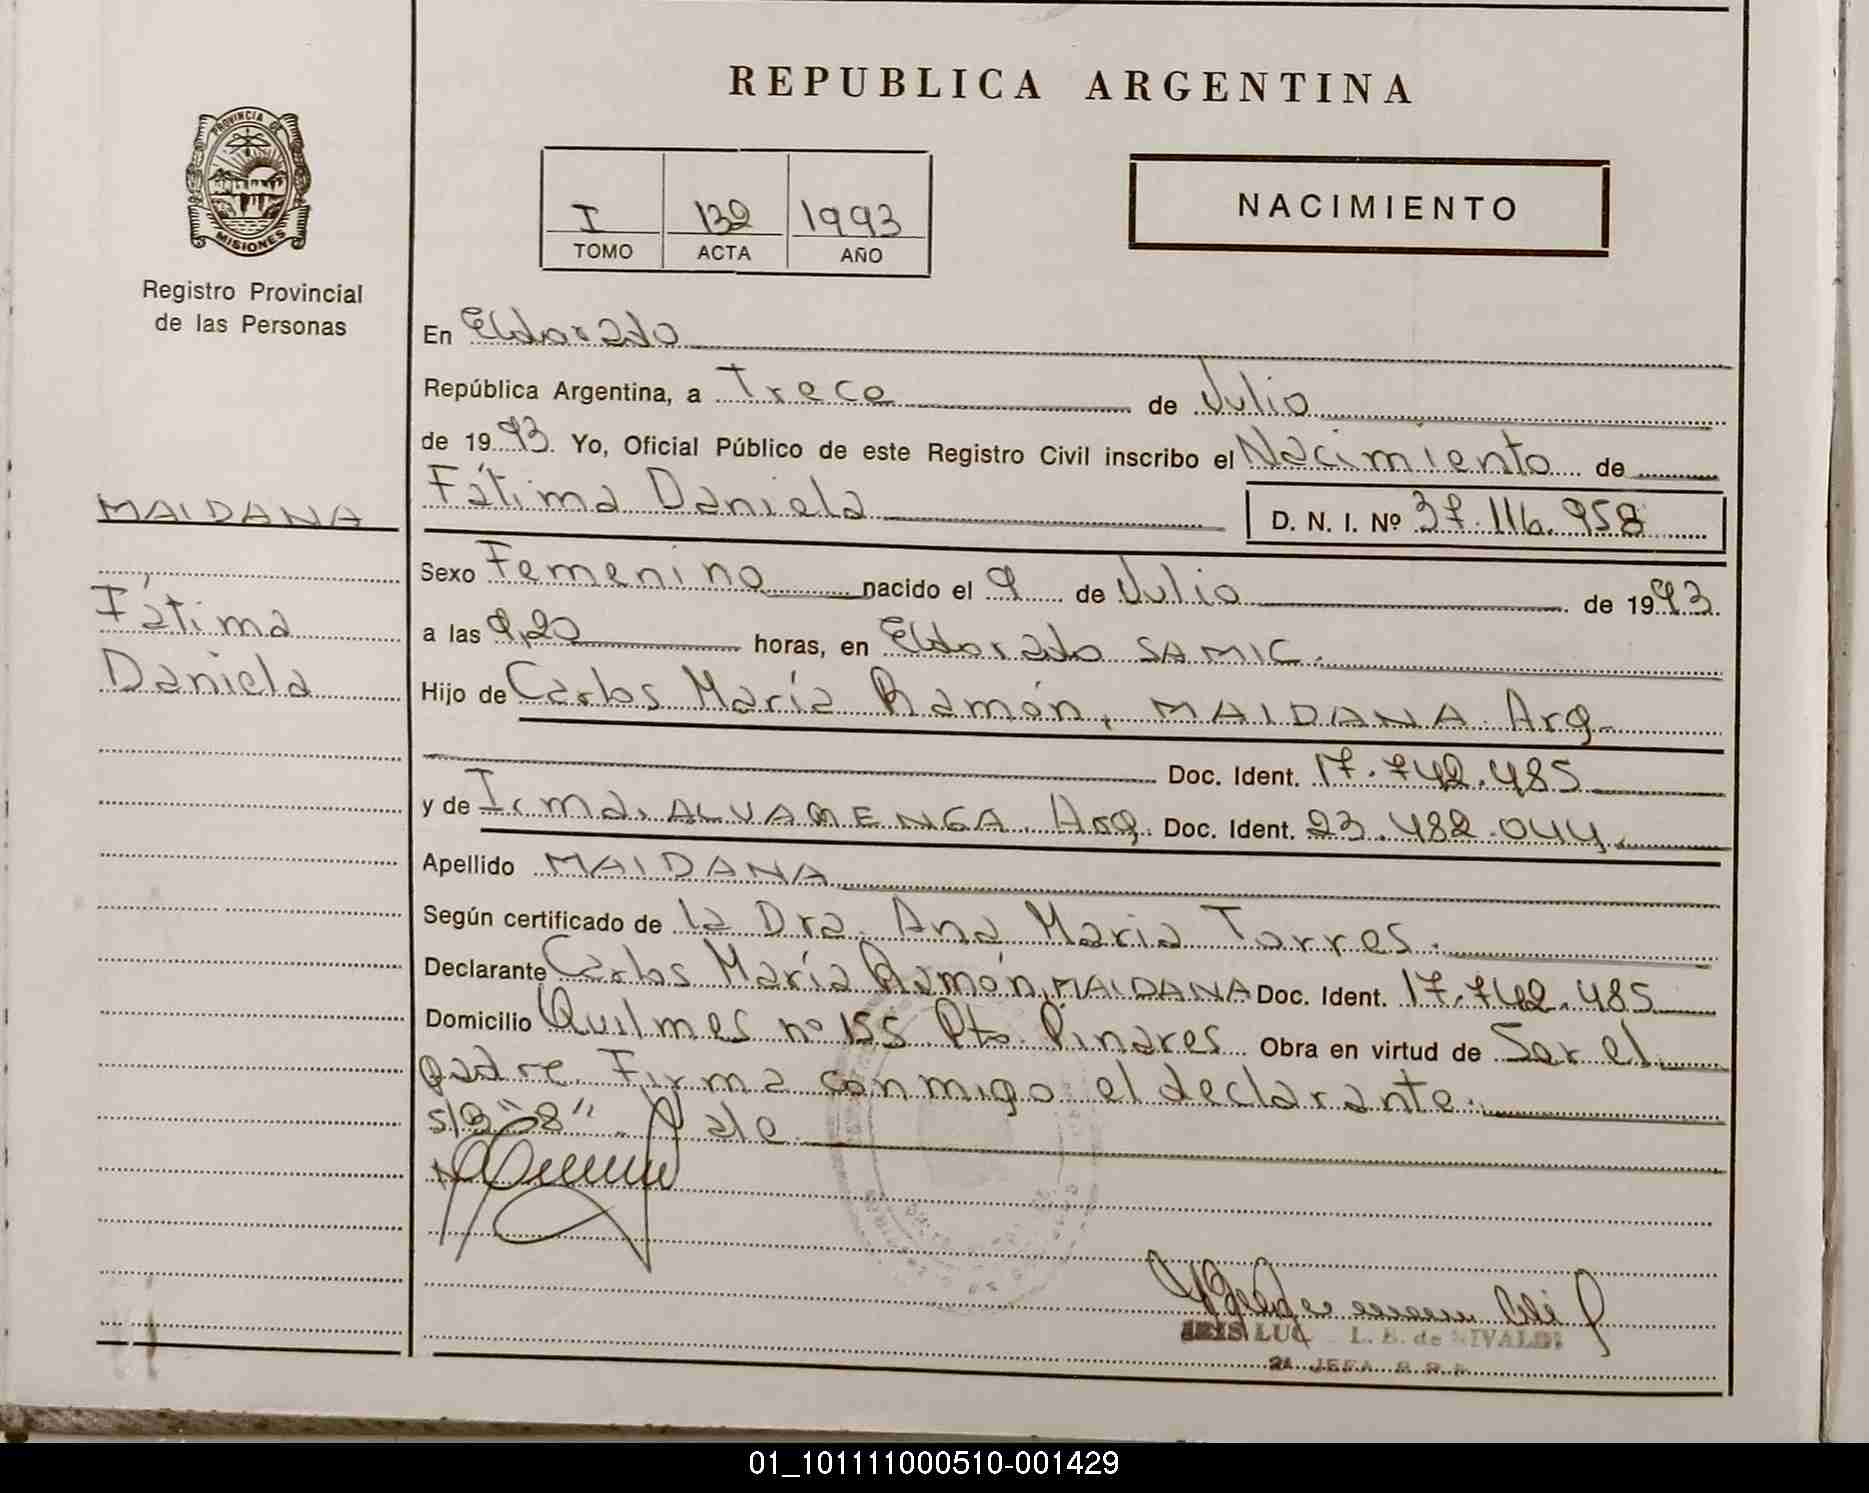 REPUBLICA ARGENTINA
PROVINCIA DE
MISIONES
Registro Provincial
de las Personas
I 132 1993
TOMO ACTA AÑO
NACIMIENTO
MAIDANA
Fátima
Daniela
En Eldorado
República Argentina, a Trece de Julio
de 1993. Yo, Oficial Público de este Registro Civil inscribo el Nacimiento de
Fátima Daniela D. N. I. Nº 37.116.958
Sexo Femenino nacido el 9 de Julio de 1993.
a las 9,20 horas, en Eldorado SAMIC.
Hijo de Carlos María Ramón, MAIDANA. Arg.
Doc. Ident. 17.742.485
y de Irma, ALVARENGA. Arg. Doc. Ident. 23.482.044.
Apellido MAIDANA
Según certificado de la Dra. Ana Maria Torres.
Declarante Carlos María Ramón, MAIDANA Doc. Ident. 17.742.485
Domicilio Quilmes nº 155 Pto. Pinares Obra en virtud de Ser el
padre. Firma conmigo el declarante.
s/B "8". Vale
L. B. de
2A JEFA
01_101111000510-001429